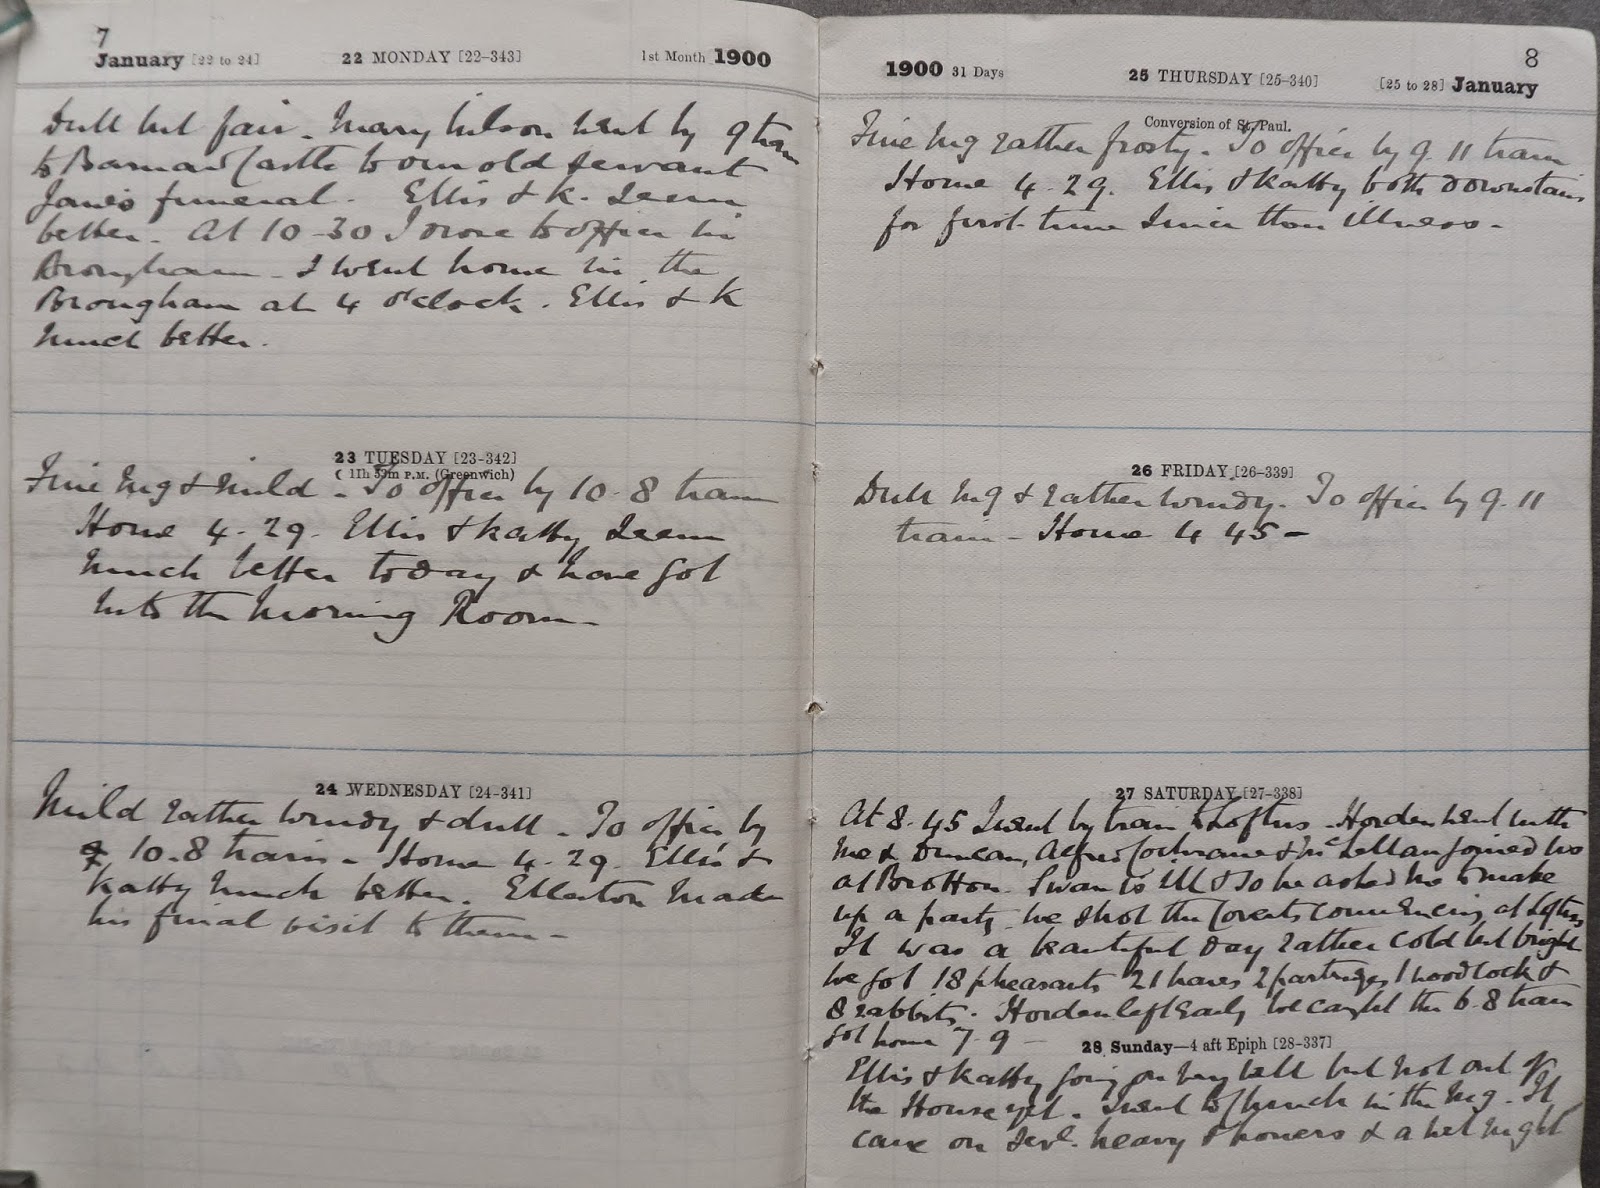 7
January [22 to 24] 22 MONDAY [22-343] 1st Month 1900
Dull but fair - Mary Wilson went by 9 train
to Barnard Castle to our old servant
Jane's funeral. Ellis & K. seem
better. At 10-30 I drove to office in
Brougham - I went home in the
Brougham at 4 o'clock. Ellis & K
much better.
23 TUESDAY [23-342]
( 11h 53m P.M. (Greenwich)
Fine Mg & mild - To office by 10-8 train
Home 4-29. Ellis & Katty seem
much better today & have got
into the Morning Room -
24 WEDNESDAY [24-341]
Mild rather windy & dull - To office by
10-8 train - Home 4-29. Ellis &
Katty much better. Ellerton made
his final visit to them -
8
1900 31 Days 25 THURSDAY [25-340] [25 to 28] January
Conversion of St. Paul.
Fine Mg rather frosty. To office by 9.11 train
Home 4-29. Ellis & Katty both downstairs
for first time since their illness -
26 FRIDAY [26-339]
Dull Mg & rather windy. To office by 9.11
train - Home 4 45 -
27 SATURDAY [27-338]
At 8.45 I went by train to Loftus - Horden went with
me & Duncan, Alfred Cochrane & McLellan joined us
at Brotton. Swan is ill & so he asked me to make
up a party we shot the Coverts commencing at Loftus
It was a beautiful day rather cold but bright
we got 18 pheasants 21 hares 2 partridges 1 woodcock &
8 rabbits. Horden left early we caught the 6.8 train
got home 7-9 -
28 Sunday—4 aft Epiph [28-337]
Ellis & Katty going on very well but not out of
the House yet. I went to Church in the Mg. It
came on sevl. heavy showers & a wet night